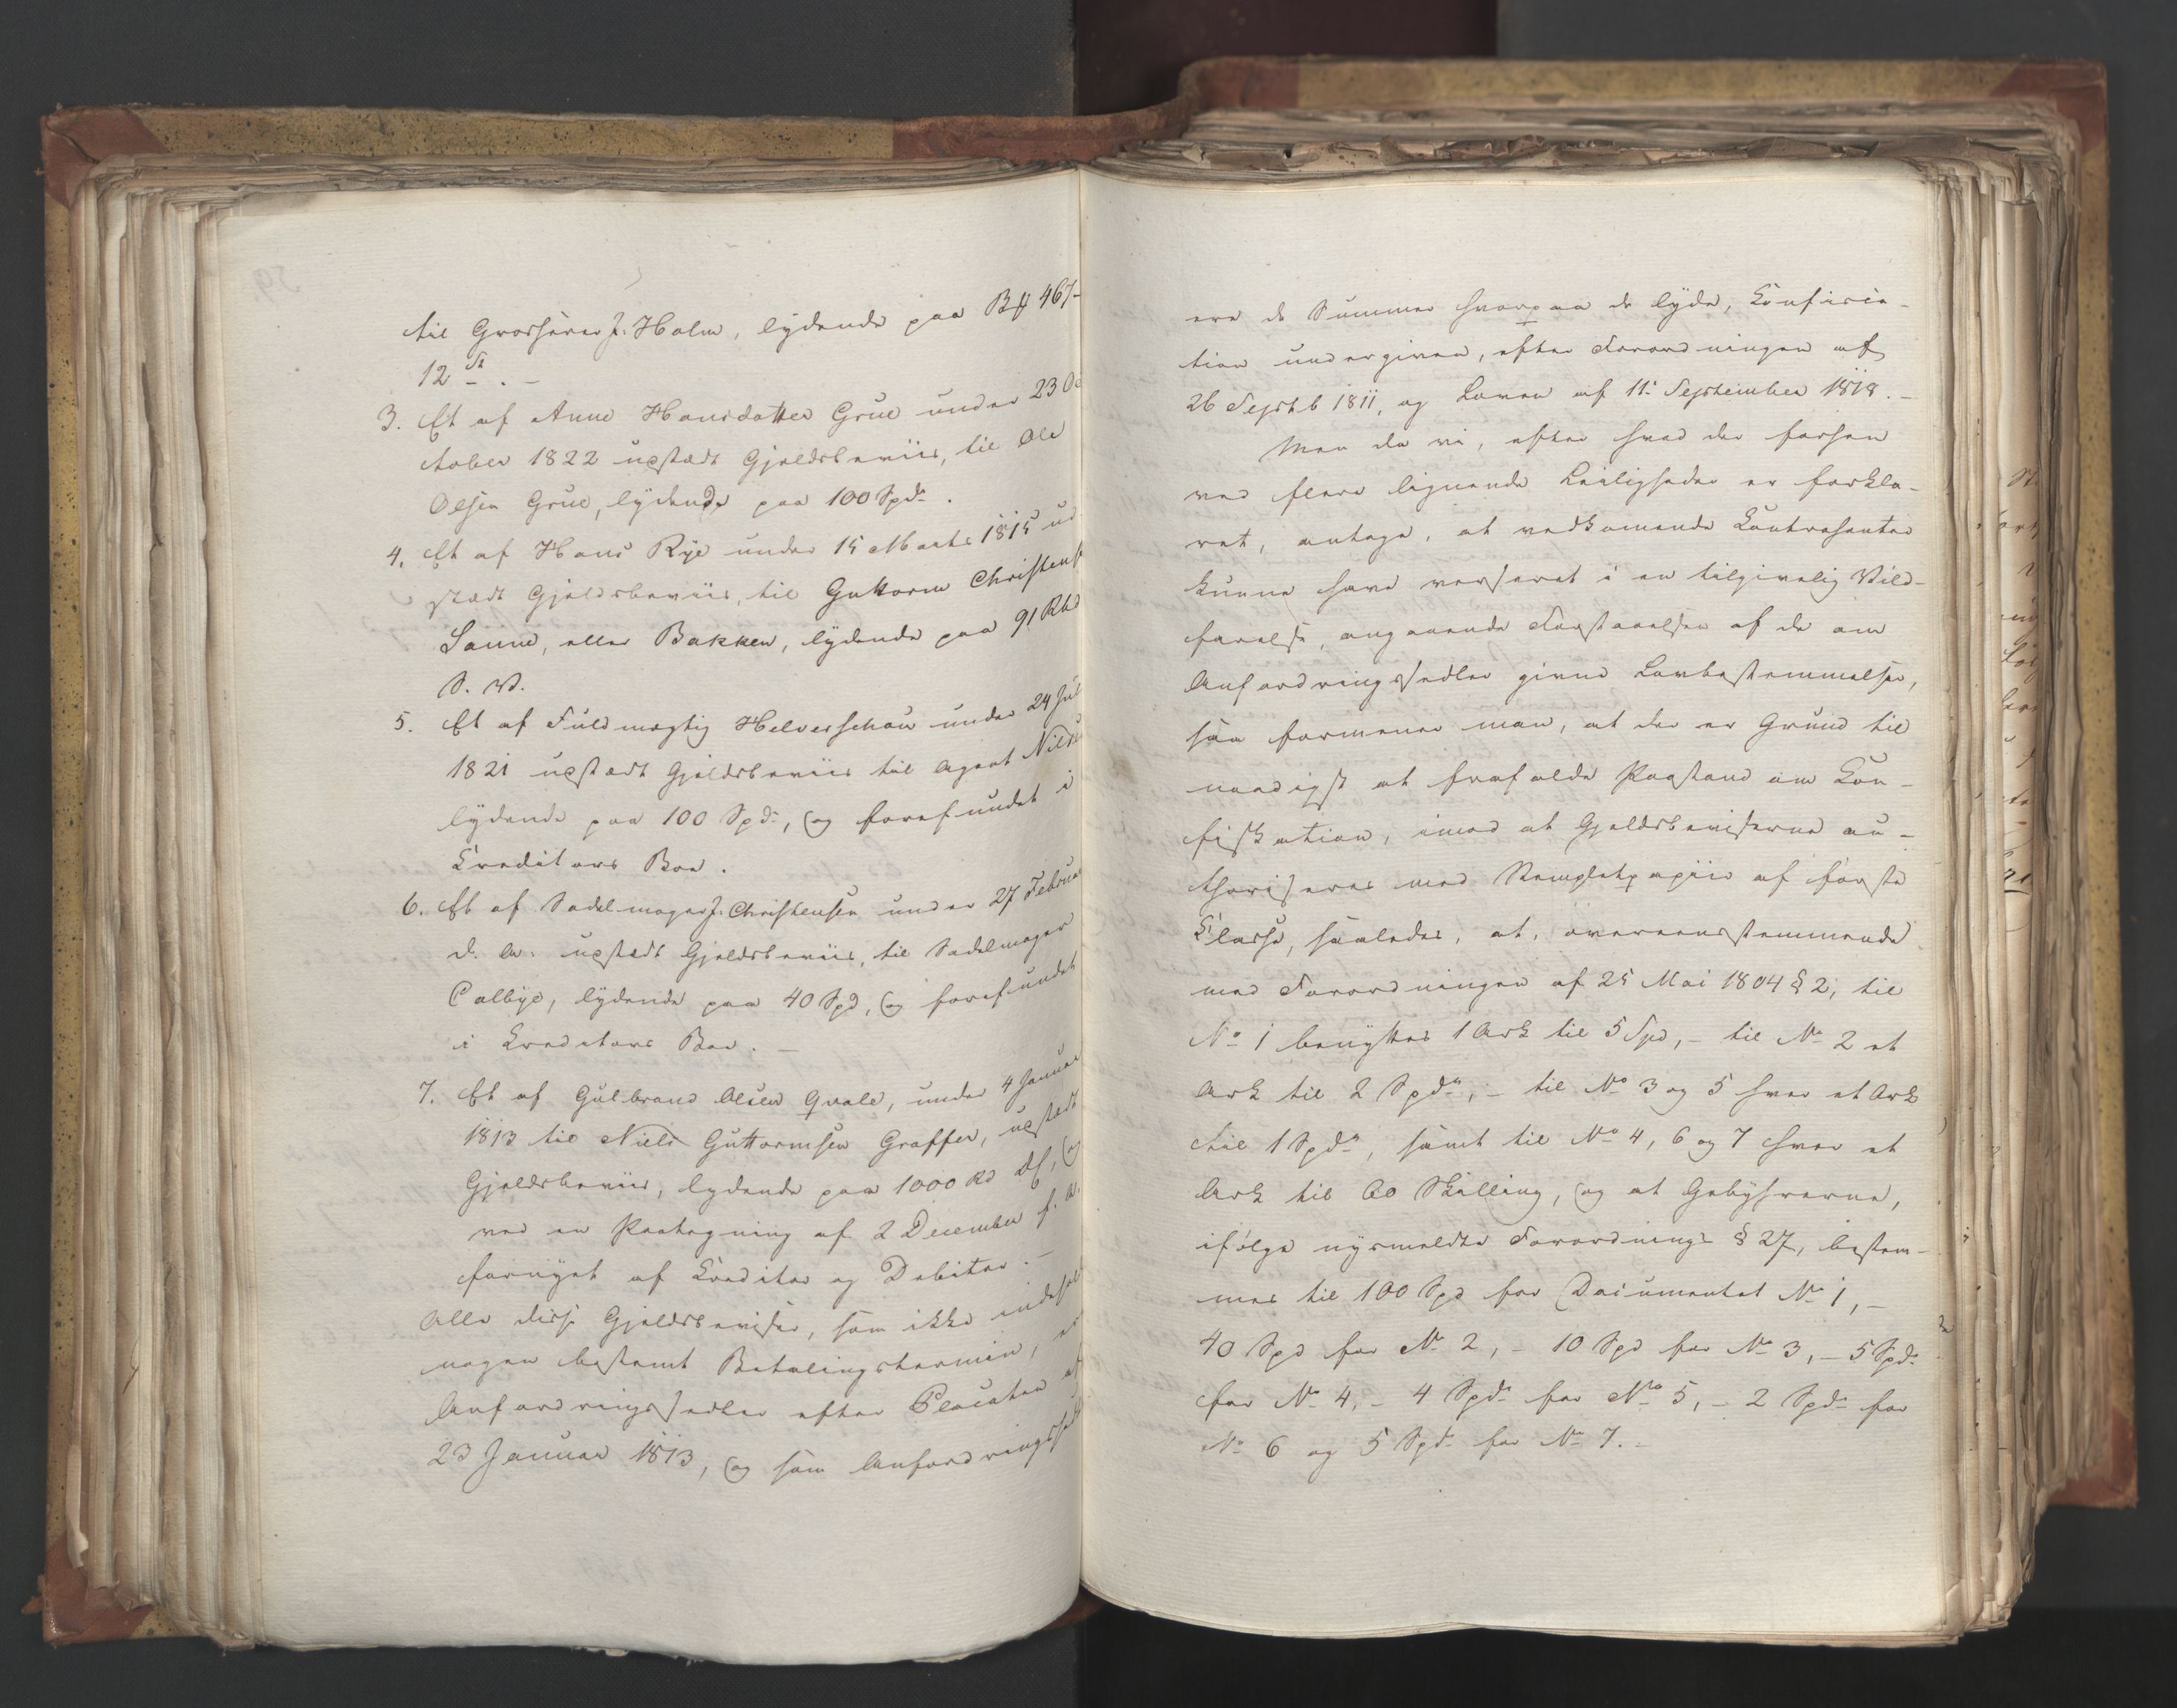 til Grosserer J. Holm, lydende paa B# 467-
12 s. -
3. Et af Anne Hansdatter Grue under 23 Oc
tober 1822 udstædt Gjeldsbeviis, til Ole
Olsen Grue, lydende paa 100 Spd.
4. Et af Hans Rye under 15 Marts 1815 ud
stædt Gjeldsbeviis, til Guttorm Christens
Sanne, eller Bakken, lydende paa 91 Rbd
S. V.
5. Et af Fuldmægtig Helverschou under 24 Jul
1821 udstædt Gjeldsbeviis til Agent Nilse
lydende paa 100 Spd., og forefundet i
Creditors Boe.
6. Et af Sadelmager J. Christensen under 27 Februar
d. A. udstædt Gjeldsbeviis, til Sadelmager
Colbye, lydende paa 40 Spd, og forefundet
i Creditors Boe. -
7. Et af Gulbrand Olsen Qvale, under 4 Januar
1813 til Niels Guttormsen Graffer, udstædt
Gjeldsbeviis, lydende paa 1000 Rd DC, og
ved en Paategning af 2 December f. A.
fornyet af Creditor og Debitor. -
Alle disse Gjeldsbeviser, som ikke indehol
nogen bestemt Betalingstermin, er
Anfordringssedler efter Placaten af
23 Januar 1813, og som Anfordringssedl
ere de Summer hvorpaa de lyde, Confisca-
tion undergiven, efter Forordningen af
26 Septb 1811, og Loven af 11. September 1818. -
Men da vi, efter hvad der forhen
ved flere lignende Leiligheder er forkla-
ret, antage, at vedkommende Contrahenter
kunne have verseret i en tilgivelig Vild-
farelse, angaaende Forstaaelsen af de om
Anfordringssedler givne Lovbestemmelser,
saa formener man, at der er Grund til
naadigst at frafalde Paastand om Con-
fiskation, imod at Gjeldsbeviserne au-
thoriseres med Stempletpapiir af første
Classe, saaledes, at, overeensstemmende
med Forordningen af 25 Mai 1804 § 2, til
No 1 benyttes 1 Ark til 5 Spd, - til No 2 et
Ark til 2 Spd., - til No 3 og 5 hver et Ark
til 1 Spd., samt til No 4, 6 og 7 hver et
Ark til 60 Skilling, og at Gebyhrerne,
ifølge nysmeldte Forordnings § 27, bestem-
mes til 100 Spd for Documentet No 1, -
40 Spd for No 2, - 10 Spd for No 3, - 5 Spd.
for No 4, - 4 Spd. for No 5, - 2 Spd. for
No 6 og 5 Spd. for No 7. -